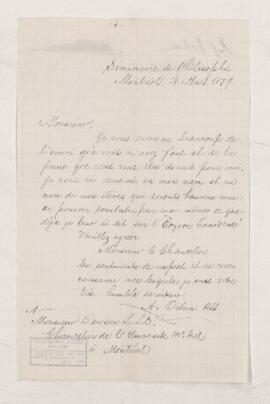 Séminaire de Philosophie
Montréal, 7 1879
Monsieur,
Je vous remercie beaucoup de
l'envoi que vous m'avez fait et de la
peine que vous vous êtes donnée pour moi.
Je vous en remercie en mon nom et au
nom de mes élèves qui seront heureux aussi
de pouvoir constater par eux-mêmes ce que
déjà je leur ai dit sur l'Eozoon Canadense
Veuillez agréer
Monsieur le Chancelier
les sentiments de respect et de
avec lesquels je suis votre
très humble serviteur,
A
Monsieur Dawson L.L.D.
Chancelier de l'Université McGill
à Montréal